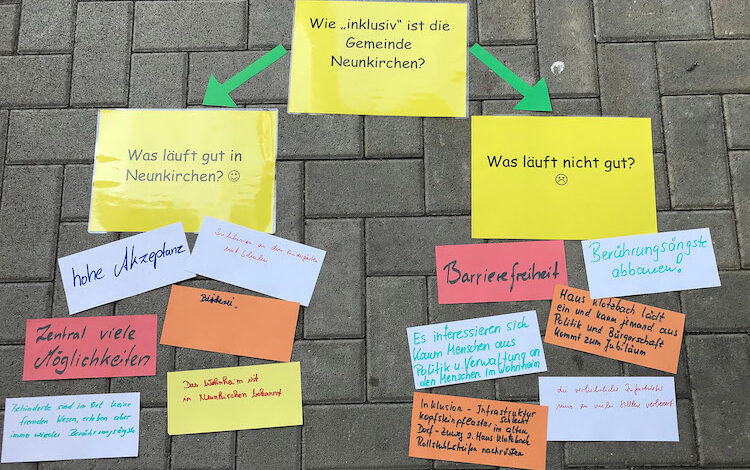 Wie „inklusiv“ ist die
Gemeinde
Neunkirchen?
Was läuft gut in
Neunkirchen? ☺
hohe Akzeptanz
mit Schulen
Zentral viele
Möglichkeiten
Bücherei.
Behinderte sind im Ort keine
fremden Wesen, erleben aber
immer wieder Berührungsängste
Das Wohnheim ist
in Neunkirchen bekannt
Was läuft nicht gut?
☹
Barrierefreiheit
Berührungsängste
abbauen!
Es interessieren sich
kaum Menschen aus
Politik u. Verwaltung an
den Menschen im Wohnheim
Haus Klotzbach lädt
ein und kaum jemand aus
Politik und Bürgerschaft
kommt zum Jubiläum
Inklusion - Infrastruktur schlecht
Kopfsteinpflaster im alten
Dorf - Zuweg z. Haus Klotzbach
Rollstuhlstreifen nachrüsten
die
muss an vielen Stellen verbessert